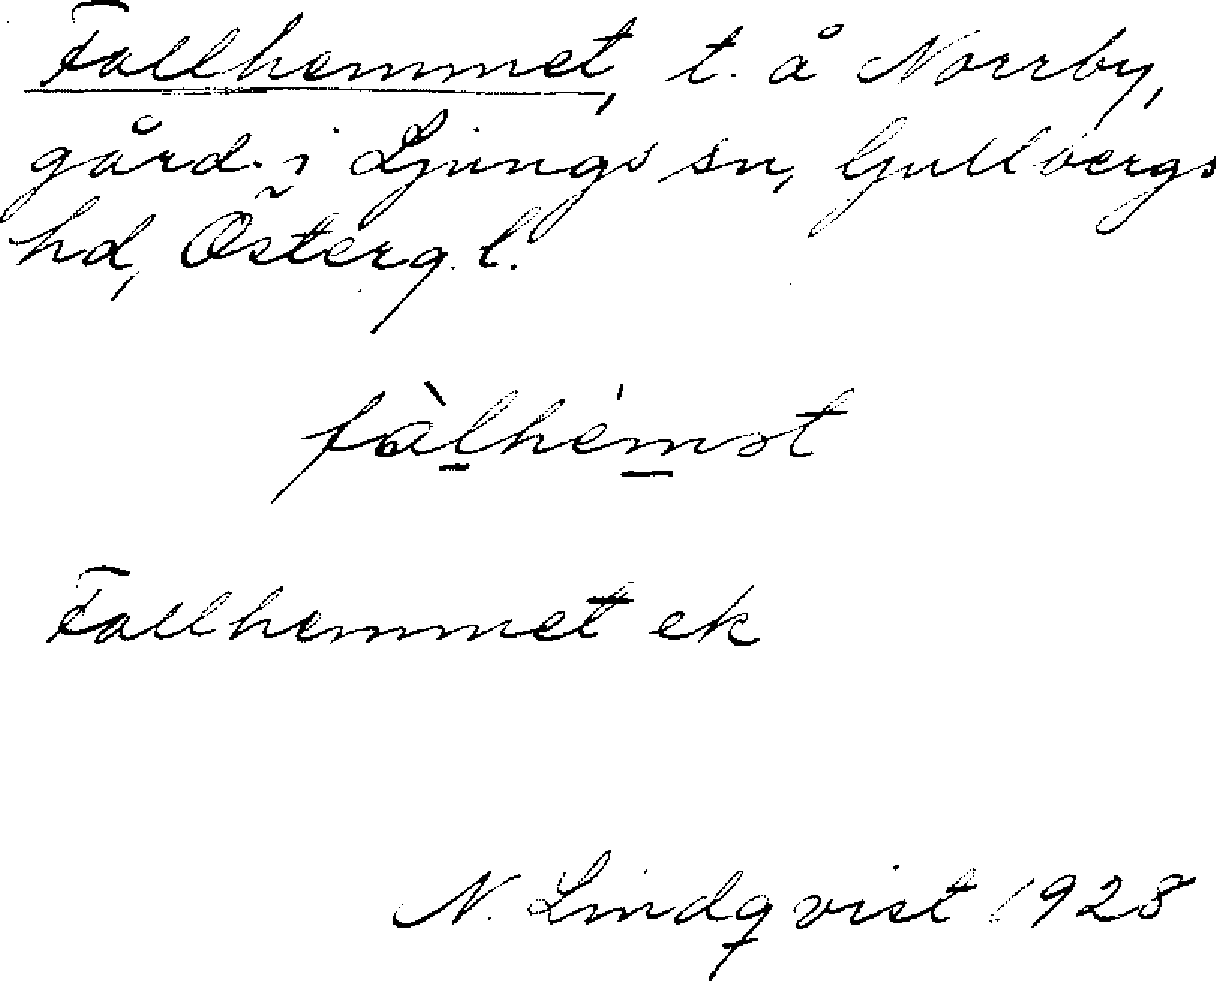 Fallhemmet, t. å Norrby,
gård i Ljungs sn, Gullbergs
hd, Österg. l.
fàlhémət
Fallhemmet ek
N. Lindqvist 1928